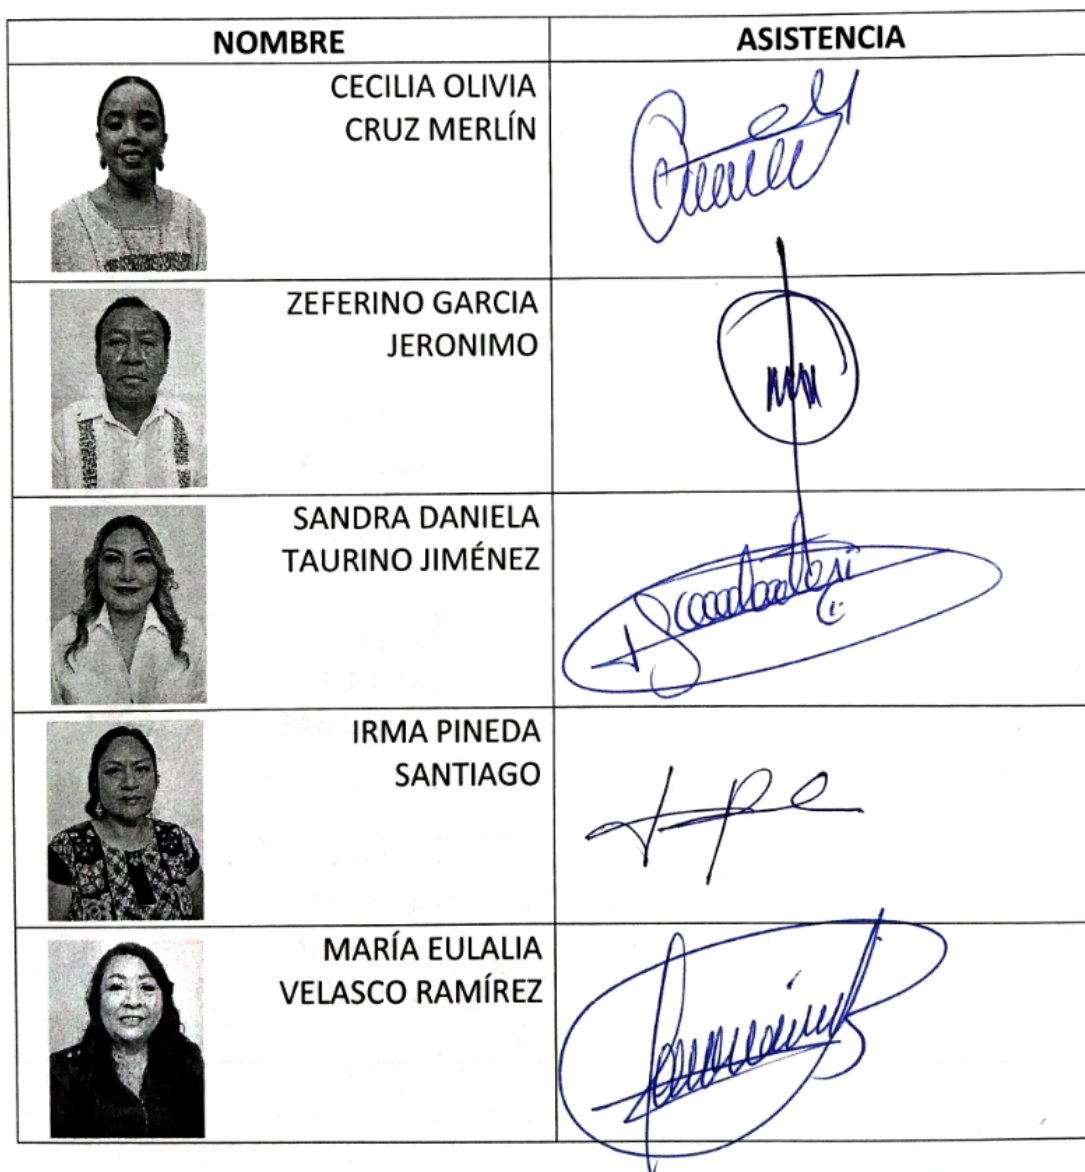 NOMBRE ASISTENCIA
CECILIA OLIVIA
CRUZ MERLÍN
ZEFERINO GARCIA
JERONIMO
SANDRA DANIELA
TAURINO JIMÉNEZ
IRMA PINEDA
SANTIAGO
MARÍA EULALIA
VELASCO RAMÍREZ